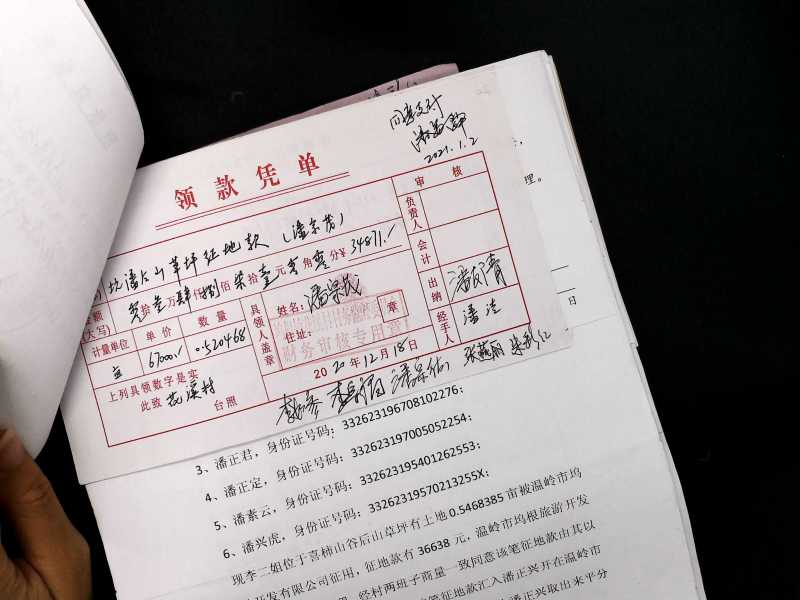 同意支付
2021.1.2
领款凭单
审核
坑潘片山草坪征地款（潘宗茂）
负责人
金额
(大写)
拾叁万肆仟捌佰柒拾壹元零角零分¥34871.-
会计
计量单位 单价 数量
亩 67000.- 0.520468
具领人盖章
姓名：
住址：
章
财务审核专用章
出纳
经手人
上列具领数字是实
此致 台照
2020年12月18日
理。
日
3、潘正君，身份证号码：332623196708102276；
4、潘正定，身份证号码：332623197005052254；
5、潘素云，身份证号码：332623195401262553；
6、潘兴虎，身份证号码：33262319570213255X；
现李二姐位于喜柿山谷后山草坪有土地0.5468385亩被温岭市坞
开发有限公司征用，征地款有36638元，温岭市坞根旅游开发
经村两班子商量一致同意该笔征地款由其以
征地款汇入潘正兴开在温岭市
潘正兴取出来平分